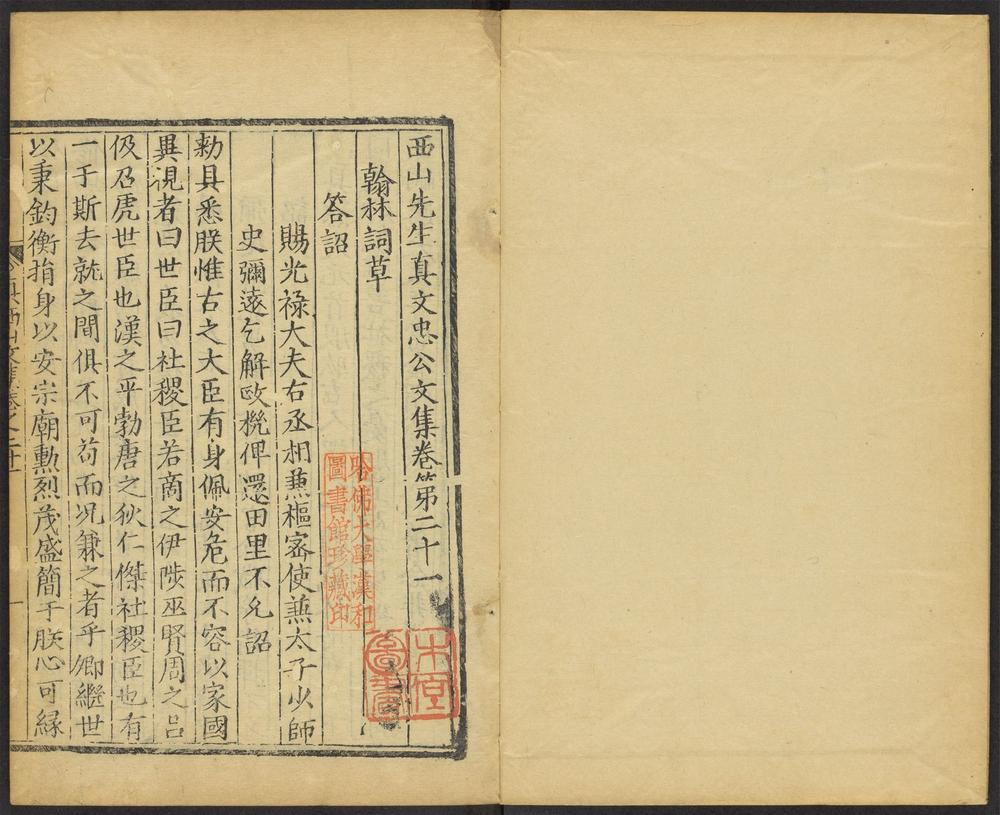 西山先生真文忠公文集卷第二十一
翰林詞草
答詔
賜光祿大夫右丞相兼樞密使兼太子少師
史彌遠乞解政機俾還田里不允詔
勑具悉朕惟古之大臣有身佩安危而不容以家國
異視者曰世臣曰社稷臣若商之伊陟巫賢周之呂
伋召虎世臣也漢之平勃唐之狄仁傑社稷臣也有
一于斯去就之間俱不可苟而况兼之者乎卿繼世
以秉鈞衡捐身以安宗廟勳烈茂盛簡于朕心可縁
真西山文集卷之二十一
哈佛大學漢和
圖書館珍藏印
木堂
圖書